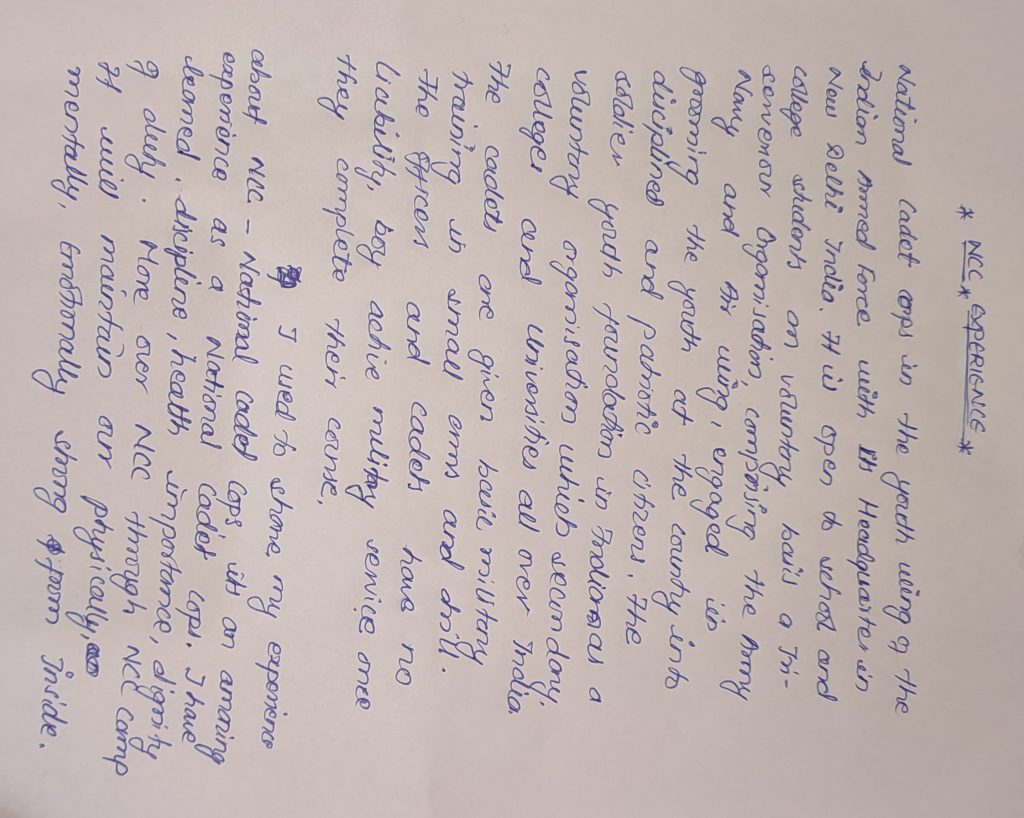 * NCC EXPRIENCE *
National Cadet Cops in the youth wing of the
Indian Armed Force with its Headquaters in
New Delhi India. It is open to school and
college students on voluntry basis a Tri-
services Organisation, comprising the Army
Navy and Air wing, engaged in
grooming the youth at the country into
disciplined and patriotic citizens. The
soldier youth foundation in India is a
voluntry organisation which secondary
colleges and Universities all over India.
The cadets are given basic military
training in small arms and drill.
The officers and cadets have no
liability, boy active military service once
they complete their course.
I used to share my experience
about NCC - National cadet Cops it's an amazing
experience as a National Cadet Cops. I have
learned discipline, health importance, dignity
of duty. More over NCC through NCC camp
It will maintain our physically,
mentally, Emotionally strong from Inside.